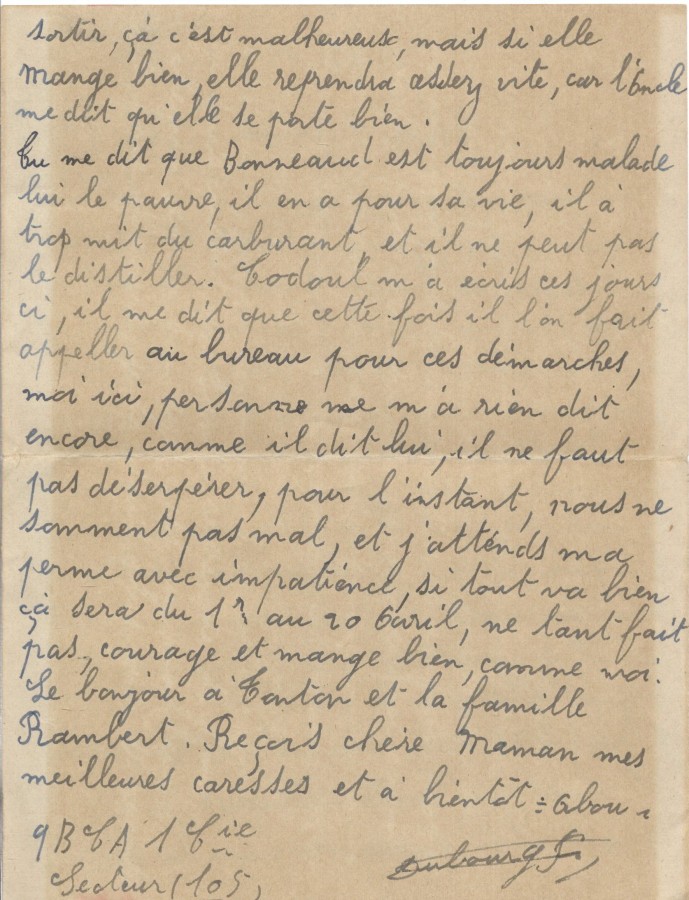 sortir, çà c'est malheureux, mais si elle
mange bien, elle reprendra assez vite, car l'Oncle
me dit qu'elle se porte bien.
Tu me dit que Bonneaud est toujours malade
lui le pauvre, il en a pour sa vie, il à
trop mit du carburant, et il ne peut pas
le distiller. Todoul m'a ecris ces jours
ci, il me dit que cette fois il l'on fait
appeller au bureau pour ces démarches,
moi ici, personne ne m'a rien dit
encore, comme il dit lui, il ne faut
pas déserpérer, pour l'instant, nous ne
somment pas mal, et j'attends ma
perme avec impatience, si tout va bien
çà sera du 1r au 20 Avril, ne tant fait
pas, courage et mange bien, comme moi.
Le bonjour à Tonton et la famille
Rambert. Reçois chère Maman mes
meilleures caresses et à bientôt = Abou.
9 BCA 1 Cie
Dubourg
Secteur (105)